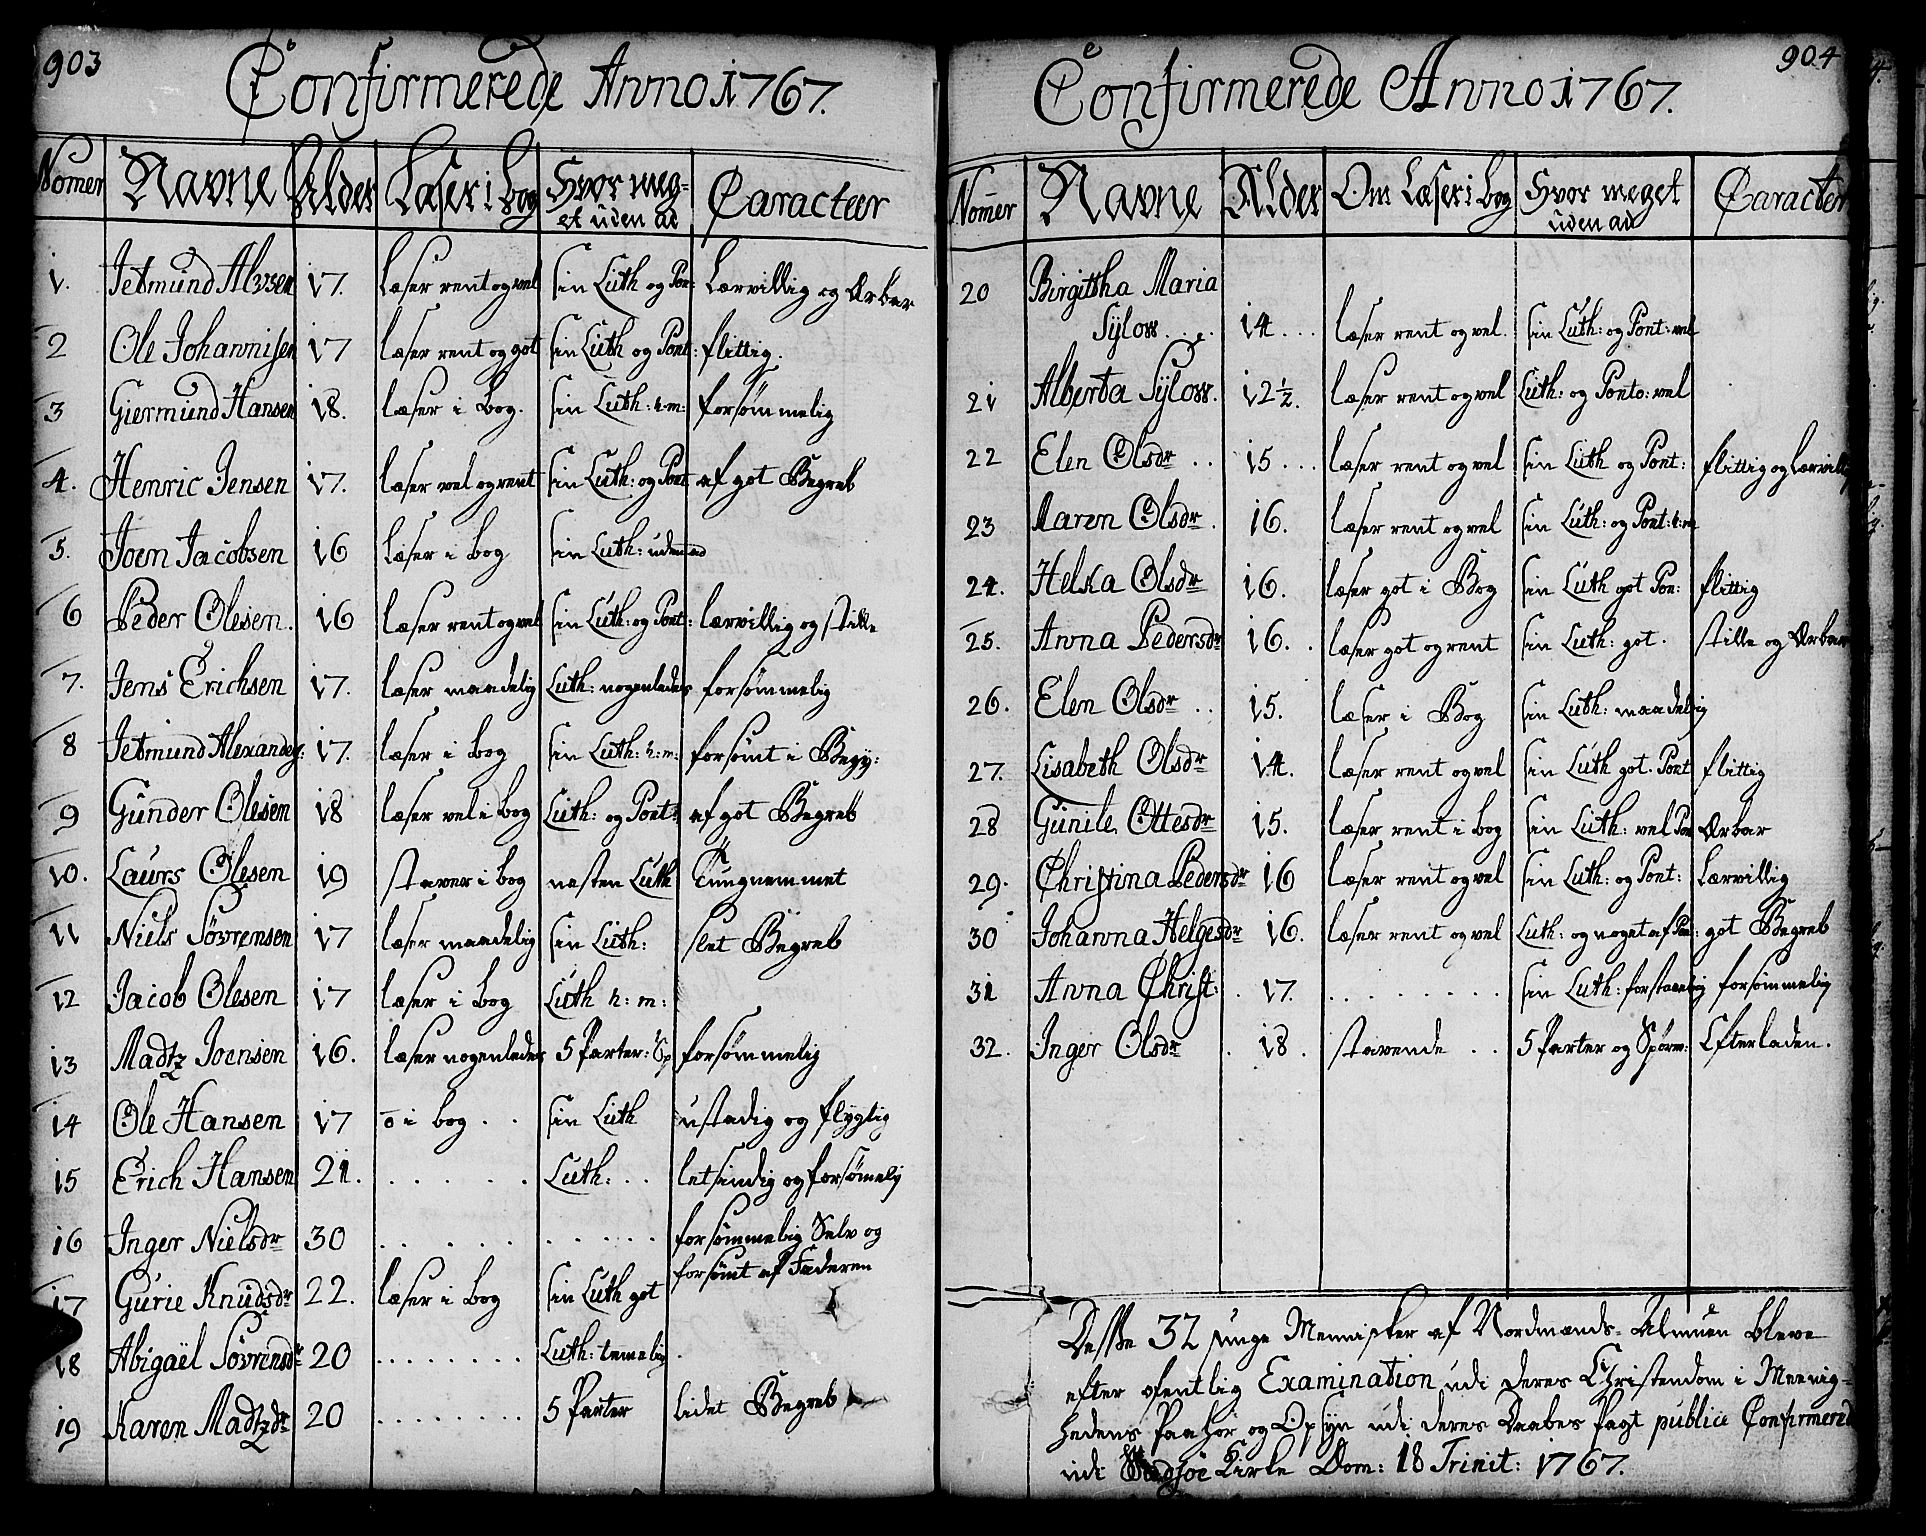 903
Confirmerede Anno 1767.
Nomer Navne Alder Læser i bog Hvor meg=
et uden ad Caracteer
1. Jetmund Alvsen 17. læser rent og vel sin Luth og Pon: Lærvillig og Ærbar
2 Ole Johannisen 17 læser rent og got sin Luth og Pont: flittig.
3 Giermund Hansen 18. læser i bog. sin Luth: h: m: forsømmelig
4. Henric Jensen 17. læser vel og rent sin Luth: og Pont af got Begreb
5. Joen Jacobsen 16 læser i bog sin Luth: uden ad
6 Peder Olesen. 16 læser rent og vel sin Luth: og Pont: lærvillig og stille
7. Jens Erichsen 17. læser maadelig Luth: nogenledes forsømmelig
8 Jetmund Alexanders: 17. læser i bog sin Luth: h: m: forsømt i Begy:
9 Gunder Olesen 18 læser vel i bog Luth: og Pont: af got Begreb
10. Laurs Olesen 19 staver i bog nesten Luth Tungnemmet
11 Niels Sövrensen 17 læser maadelig sin Luth: slet Begreb
12 Jacob Olesen 17 læser i bog Luth h: m:
13 Madtz Joensen 16. læser nogenledes 5 Parter: Sp forsømmelig
14 Ole Hansen 17 i bog . . sin Luth ustadig og flygtig
15 Erich Hansen 21. . . . . . . Luth: . . letsindig og forsømelij
16 Inger Nielsdr 30 . . . . . . . . . . . forsømmelig Selv og
forsømt af Faderen
17 Gurie Knudsdr 22. læser i bog sin Luth got
18 Abigaël Sövrensdr 20 . . . . . . . . Luth: temelig.
19 Karen Madtzdr 20 . . . . . . . . 5 Parter lidet Begreb
904
Confirmerede Anno 1767.
Nomer Navne Alder Om Læser i bog Hvor meget
uden ad Caracteer
20 Birgittha Maria
Sylow. . . . 14. . . læser rent og vel. sin Luth: og Pont: vel
21 Alberta Sylow. 12½. læser rent og vel Luth: og Ponto: vel
22 Elen Olsdr . . 15 . . . læser rent og vel sin Luth og Pont: flittig og lærvillig
23 Maren Olsdr . 16. læser rent og vel sin Luth: og Pont: h: m
24. Helka Olsdr 16. læser got i Bog sin Luth got Pon: flittig
25. Anna Pedersdr 16. . læser got og rent sin Luth: got. stille og Ærbar
26. Elen Olsdr . . 15. læser i Bog sin Luth: maadelig
27. Lisabeth Olsdr 14. læser rent og vel sin Luth got. Pont flittig
28 Gunile Ottesdr 15. læser rent i bog sin Luth: vel Pon Ærbar
29. Christina Pedersdr 16 læser rent og vel sin Luth: og Pont: Lærvillig
30 Johanna Helgesdr 16. læser rent og vel Luth: og noget af Pon: got Begreb
31 Anna Christ: . 17. . . . . . . . . sin Luth: forstaaelig forsömmelig
32. Inger Olsdr . 18 . stavende . . 5 Parter og Spörsm: Efterladen.
Disse 32 unge Mennisker af Nordmænds-Almuen bleve
efter ofentlig Examination udi deres Christendom i Meenig=
hedens Paahör og Opsyn udi deres Daabes Pagt publice Confirmered
udi Kirke Dom: 18 Trinit: 1767.